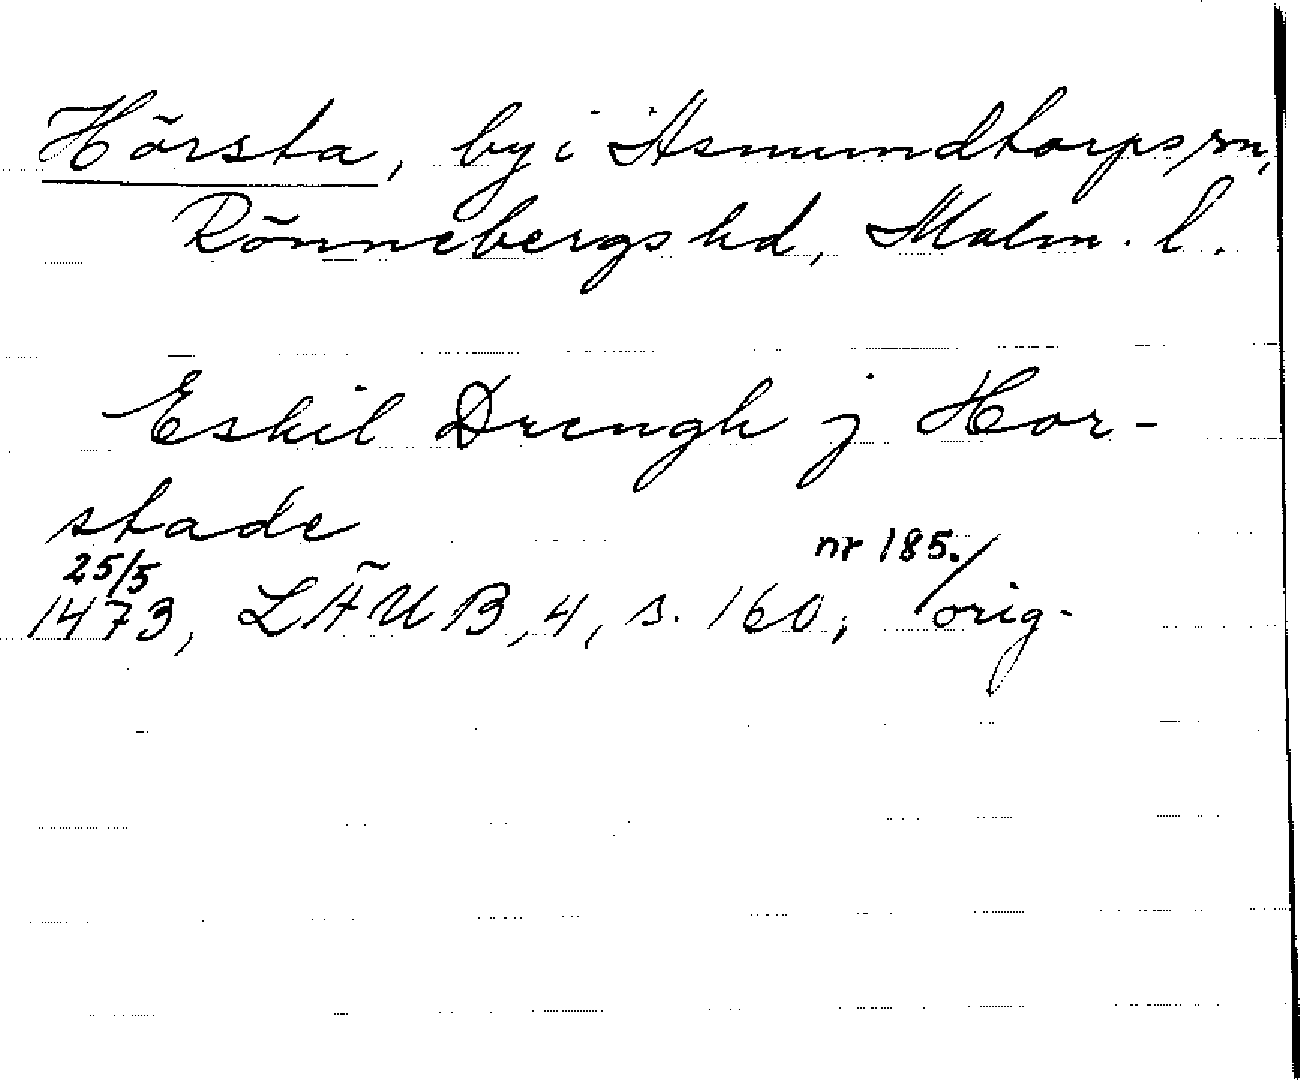 Hörsta, by i Asmundtorps sn,
Rönnebergs hd, Malm. l.
Eskil Drengh j Hor-
stade
25/5 nr 185./
1473, LÄUB, 4, s. 160, orig.